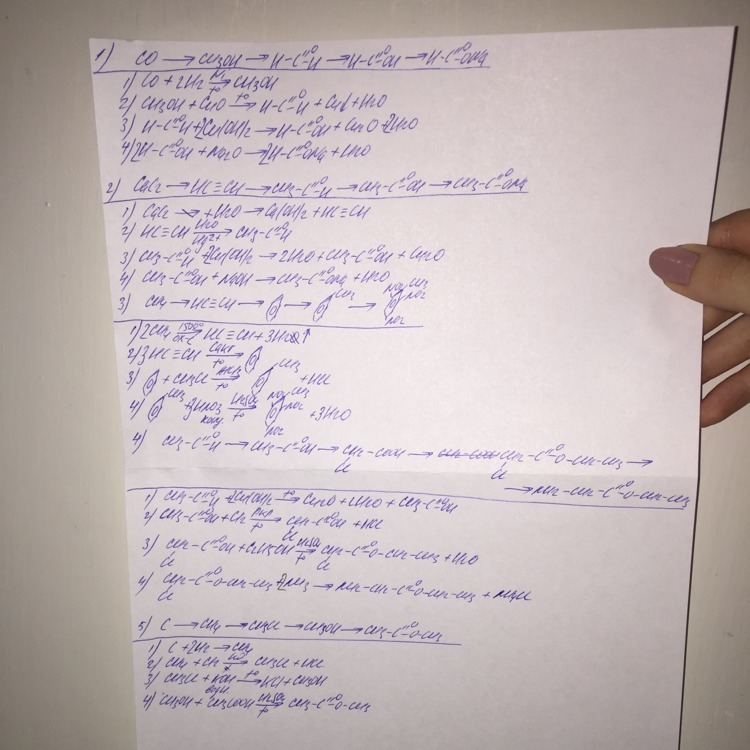 1) CO → CH3OH → H-C=O-H → H-C=O-OH → H-C=O-ONa
1) CO + 2H2 → t° CH3OH
2) CH3OH + CuO → t° H-C=O-H + Cu + H2O
3) H-C=O-H + 2Cu(OH)2 → H-C=O-OH + Cu2O + 2H2O
4) 2H-C=O-OH + Na2O → 2H-C=O-ONa + H2O
2) CaC2 → HC≡CH → CH3-C=O-H → CH3-C=O-OH → CH3-C=O-ONa
1) CaC2 + H2O → Ca(OH)2 + HC≡CH
2) HC≡CH → H2O Hg2+ CH3-C=O-H
3) CH3-C=O-H + 2Cu(OH)2 → 2H2O + CH3-C=O-OH + Cu2O
4) CH3-C=O-OH + NaOH → CH3-C=O-ONa + H2O
3) CH4 → HC≡CH → → CH3 → NO2 CH3 NO2 NO2
1) 2CH4 → 1500° HC≡CH + 3H2↑
2) 3HC≡CH → t°
3) + CH3Cl → AlCl3 t° CH3 + HCl
4) CH3 + 3HNO3 конц. → H2SO4 t° NO2 CH3 NO2 NO2 + 3H2O
4) CH3-C=O-H → CH3-C=O-OH → CH2-COOH Cl → CH2-C=O-O-CH2-CH3 Cl →
→ NH2-CH2-C=O-O-CH2-CH3
1) CH3-C=O-H + 2Cu(OH)2 → t° Cu2O + 2H2O + CH3-C=O-OH
2) CH3-C=O-OH + Cl2 → CH2-C=O-OH Cl + HCl
3) CH2-C=O-OH Cl + C2H5OH → H2SO4 t° CH2-C=O-O-CH2-CH3 Cl + H2O
4) CH2-C=O-O-CH2-CH3 Cl + 2NH3 → NH2-CH2-C=O-O-CH2-CH3 + NH4Cl
5) C → CH4 → CH3Cl → CH3OH → CH3-C=O-O-CH3
1) C + 2H2 → CH4
2) CH4 + Cl2 → hν CH3Cl + HCl
3) CH3Cl + KOH водн. → t° KCl + CH3OH
4) CH3OH + CH3COOH → H2SO4 t° CH3-C=O-O-CH3